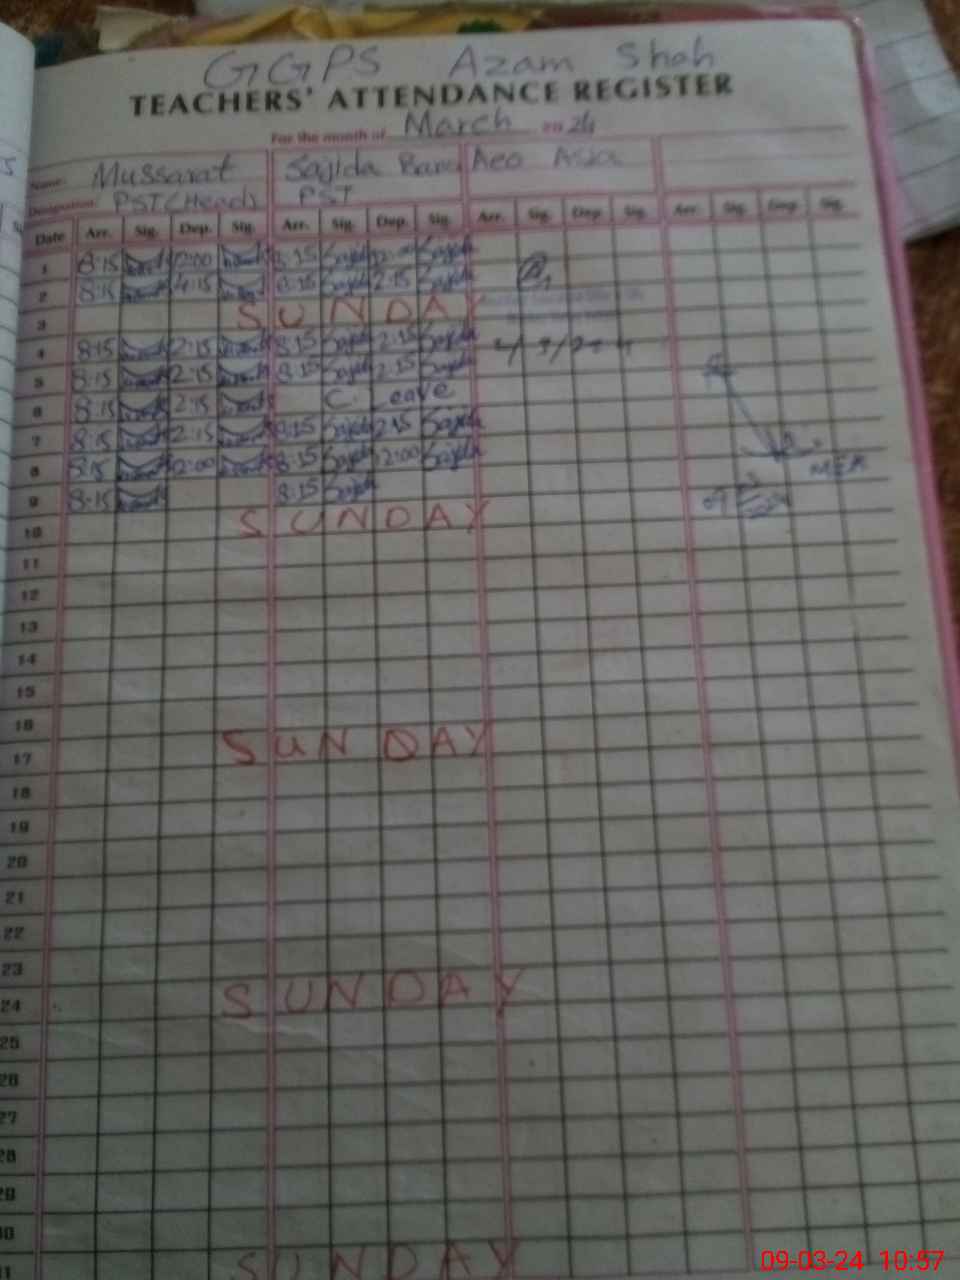 GGPS Azam Shah
TEACHERS' ATTENDANCE REGISTER
For the month of March 2024
Name: Mussarat Sajida Bano Aeo Asia
Designation PST(Head) PST
Date Arr. Sig. Dep. Sig. Arr. Sig. Dep. Sig. Arr. Sig. Dep. Sig. Arr. Sig. Dep. Sig.
1 8:15 12:00 8:15 Sajida 12:00 Sajida
2 8:15 4:15 8:15 Sajida 2:15 Sajida
3 SUNDAY
4 8:15 2:15 8:15 Sajida 2:15 Sajida
5 8:15 2:15 8:15 Sajida 2:15 Sajida
6 8:15 2:15 C. Leave
7 8:15 2:15 8:15 Sajida 2:15 Sajida
8 8:15 12:00 8:15 Sajida 12:00 Sajida
MEA
9 8:15 8:15 Sajida
10 SUNDAY
11
12
13
14
15
16
17 SUNDAY
18
19
20
21
22
23
24 SUNDAY
25
26
27
28
29
30
31 SUNDAY
09-03-24 10:57